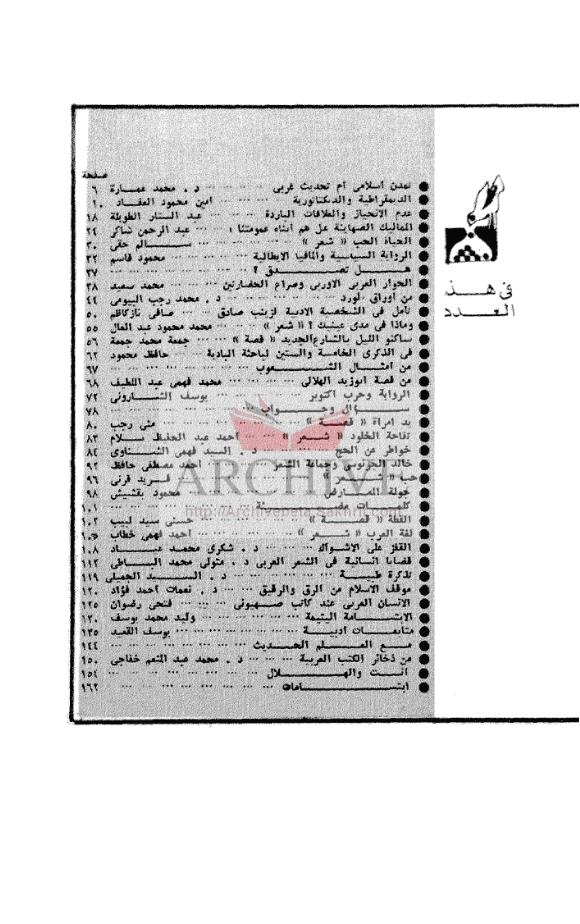 في هذا
العدد
صفحة
تمدن اسلامى أم تحديث غربى ... د . محمد عمارة ٦
الديمقراطية والدكتاتورية ... امين محمود العقاد ١٠
عدم الانحياز والعلاقات الباردة ... عبد الستار الطويلة ١٨
المماليك الصهاينة هل هم أبناء عمومتنا ؛ ... عبد الرحمن شاكر ٢٤
الحياة الحب « شعر » ... سالم حقى ٣٠
الرواية السياسية والمافيا الايطالية ... محمود قاسم ٣٢
هل تصدق ؟ ... ٣٧
الحوار العربى الاوربى وصراع الحضارتين ... محمد سعيد ٣٨
من أوراق ... د . محمد رجب البيومى ٤٤
تأمل فى الشخصية الادبية لزينب صادق ... صافى نازكاظم ٥٠
وماذا فى مدى عينيك ! « شعر » ... محمد محمود عبد العال ٥٥
ساكنو الليل بالشارع الجديد « قصة » ... جمعة محمد جمعة ٥٦
فى الذكرى الخامسة والستين لباحثة البادية ... حافظ محمود ٦٢
من أمثال الشعوب ... ٦٧
من قصة ابوزيد الهلالى ... محمد فهمى عبد اللطيف ٦٨
الرواية وحرب أكتوبر ... يوسف الشارونى ٧٢
سؤال وجواب ... ٧٨
يد امرأة « قصة » ... منى رجب ٨٠
تفاحة الخلود « شعر » ... أحمد عبد الحفيظ سلام ٨٣
خواطر عن الحج ... د . السيد فهمى الشناوى ٨٤
خالد الجرنوسى وجماعة الشعر ... أحمد مصطفى حافظ ٩٢
حب « شعر » ... فريد قرنى ٩٦
جولة المعارض ... محمود بقشيش ٩٨
كلمات ... ١٠١
القطة « قصة » ... حسنى سيد لبيب ١٠٢
لغة العرب « شعر » ... أحمد فهمى خطاب ١٠٥
القفز على الأشواك ... د . شكرى محمد عياد ١٠٨
قضايا انسانية فى الشعر العربى د . متولى محمد البساطى ١١٢
تذكرة طبية ... د . السيد الجميلى ١١٩
موقف الاسلام من الرق والرقيق ... د . نعمات أحمد فؤاد ١٢٠
الانسان العربى عند كاتب صهيونى ... فتحى رضوان ١٢٥
الابتسامة اليتيمة ... وليد محمد يوسف ١٣٠
متابعات أدبية ... يوسف القعيد ١٣٥
مع العلم الحديث ... ١٤٤
من ذخائر الكتب العربية ... د . محمد عبد المنعم خفاجى ١٥٠
أنت والهلال ... ١٥٤
ابتسامات ... ١٦٢
ARCHIVE
http://Archivebeta.Sakhrit.com